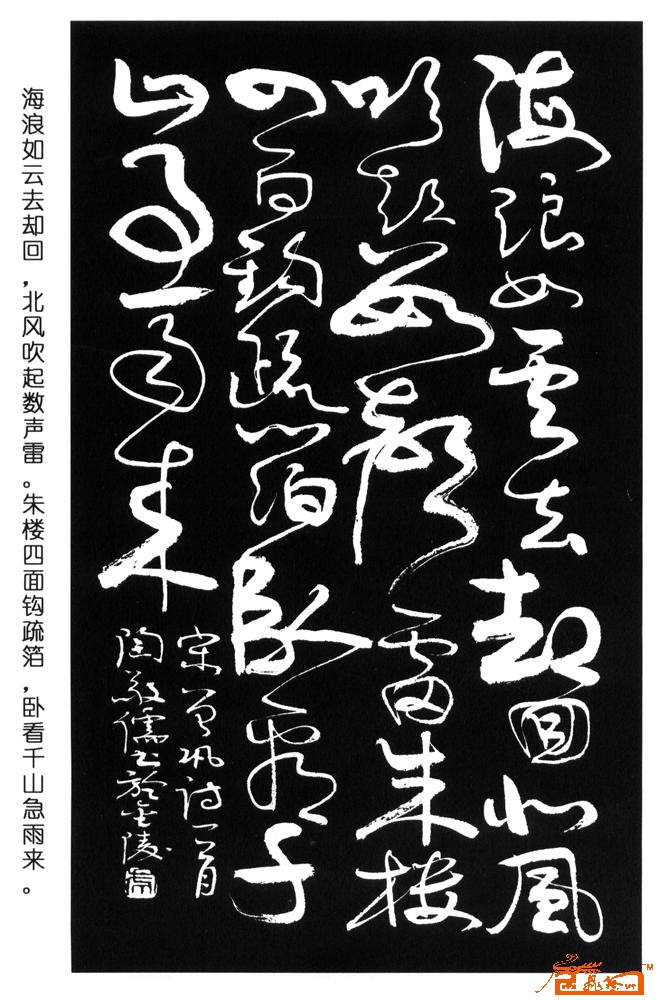 海浪如雲去却回北風
吹起數聲雷朱樓
四面鈎疏箔卧看千
山急雨来
宋曾巩詩一首
陶敬儒书於金陵
海浪如云去却回，北风吹起数声雷。朱楼四面钩疏箔，卧看千山急雨来。